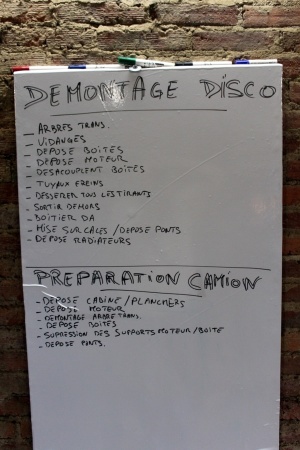 DEMONTAGE DISCO
- ARBRES TRANS.
- VIDANGES
- DEPOSE BOITES
- DEPOSE MOTEUR
- DESACOUPLENT BOITES
- TUYAUX FREINS
- DESSERER TOUS LES TIRANTS
- SORTIR DEMORS
- BOITIER DA
- MISE SUR CALES / DEPOSE PONTS
- DEPOSE RADIATEURS
PREPARATION CAMION
- DEPOSE CABINE / PLANCHERS
- DEPOSE MOTEUR
- DEMONTAGE ARBRE TRANS.
- DEPOSE BOITES
- SUPRESSION DES SUPPORTS MOTEUR / BOITE
- DEPOSE PONTS.